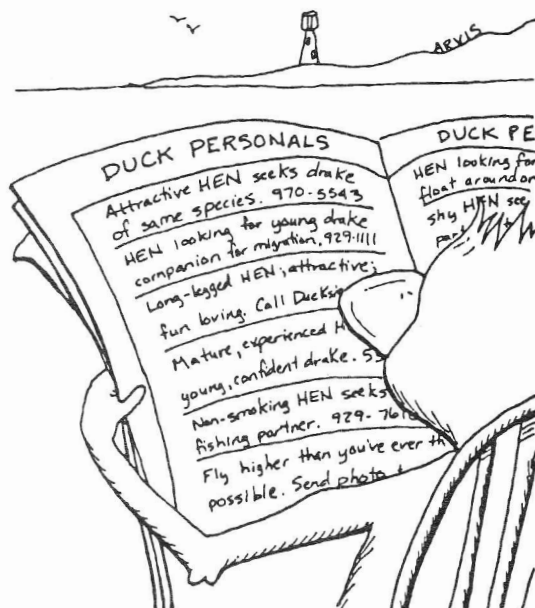 ARVIS
DUCK PERSONALS
Attractive HEN seeks drake
of same species. 970-5543
HEN looking for young drake
companion for migration. 929-1111
Long-legged HEN; attractive;
fun loving. Call
Mature, experienced
young, confident drake.
Non-smoking HEN seeks
fishing partner. 929-
Fly higher than you've ever
possible. Send photo
DUCK PE
HEN looking for
float around on
shy HEN see